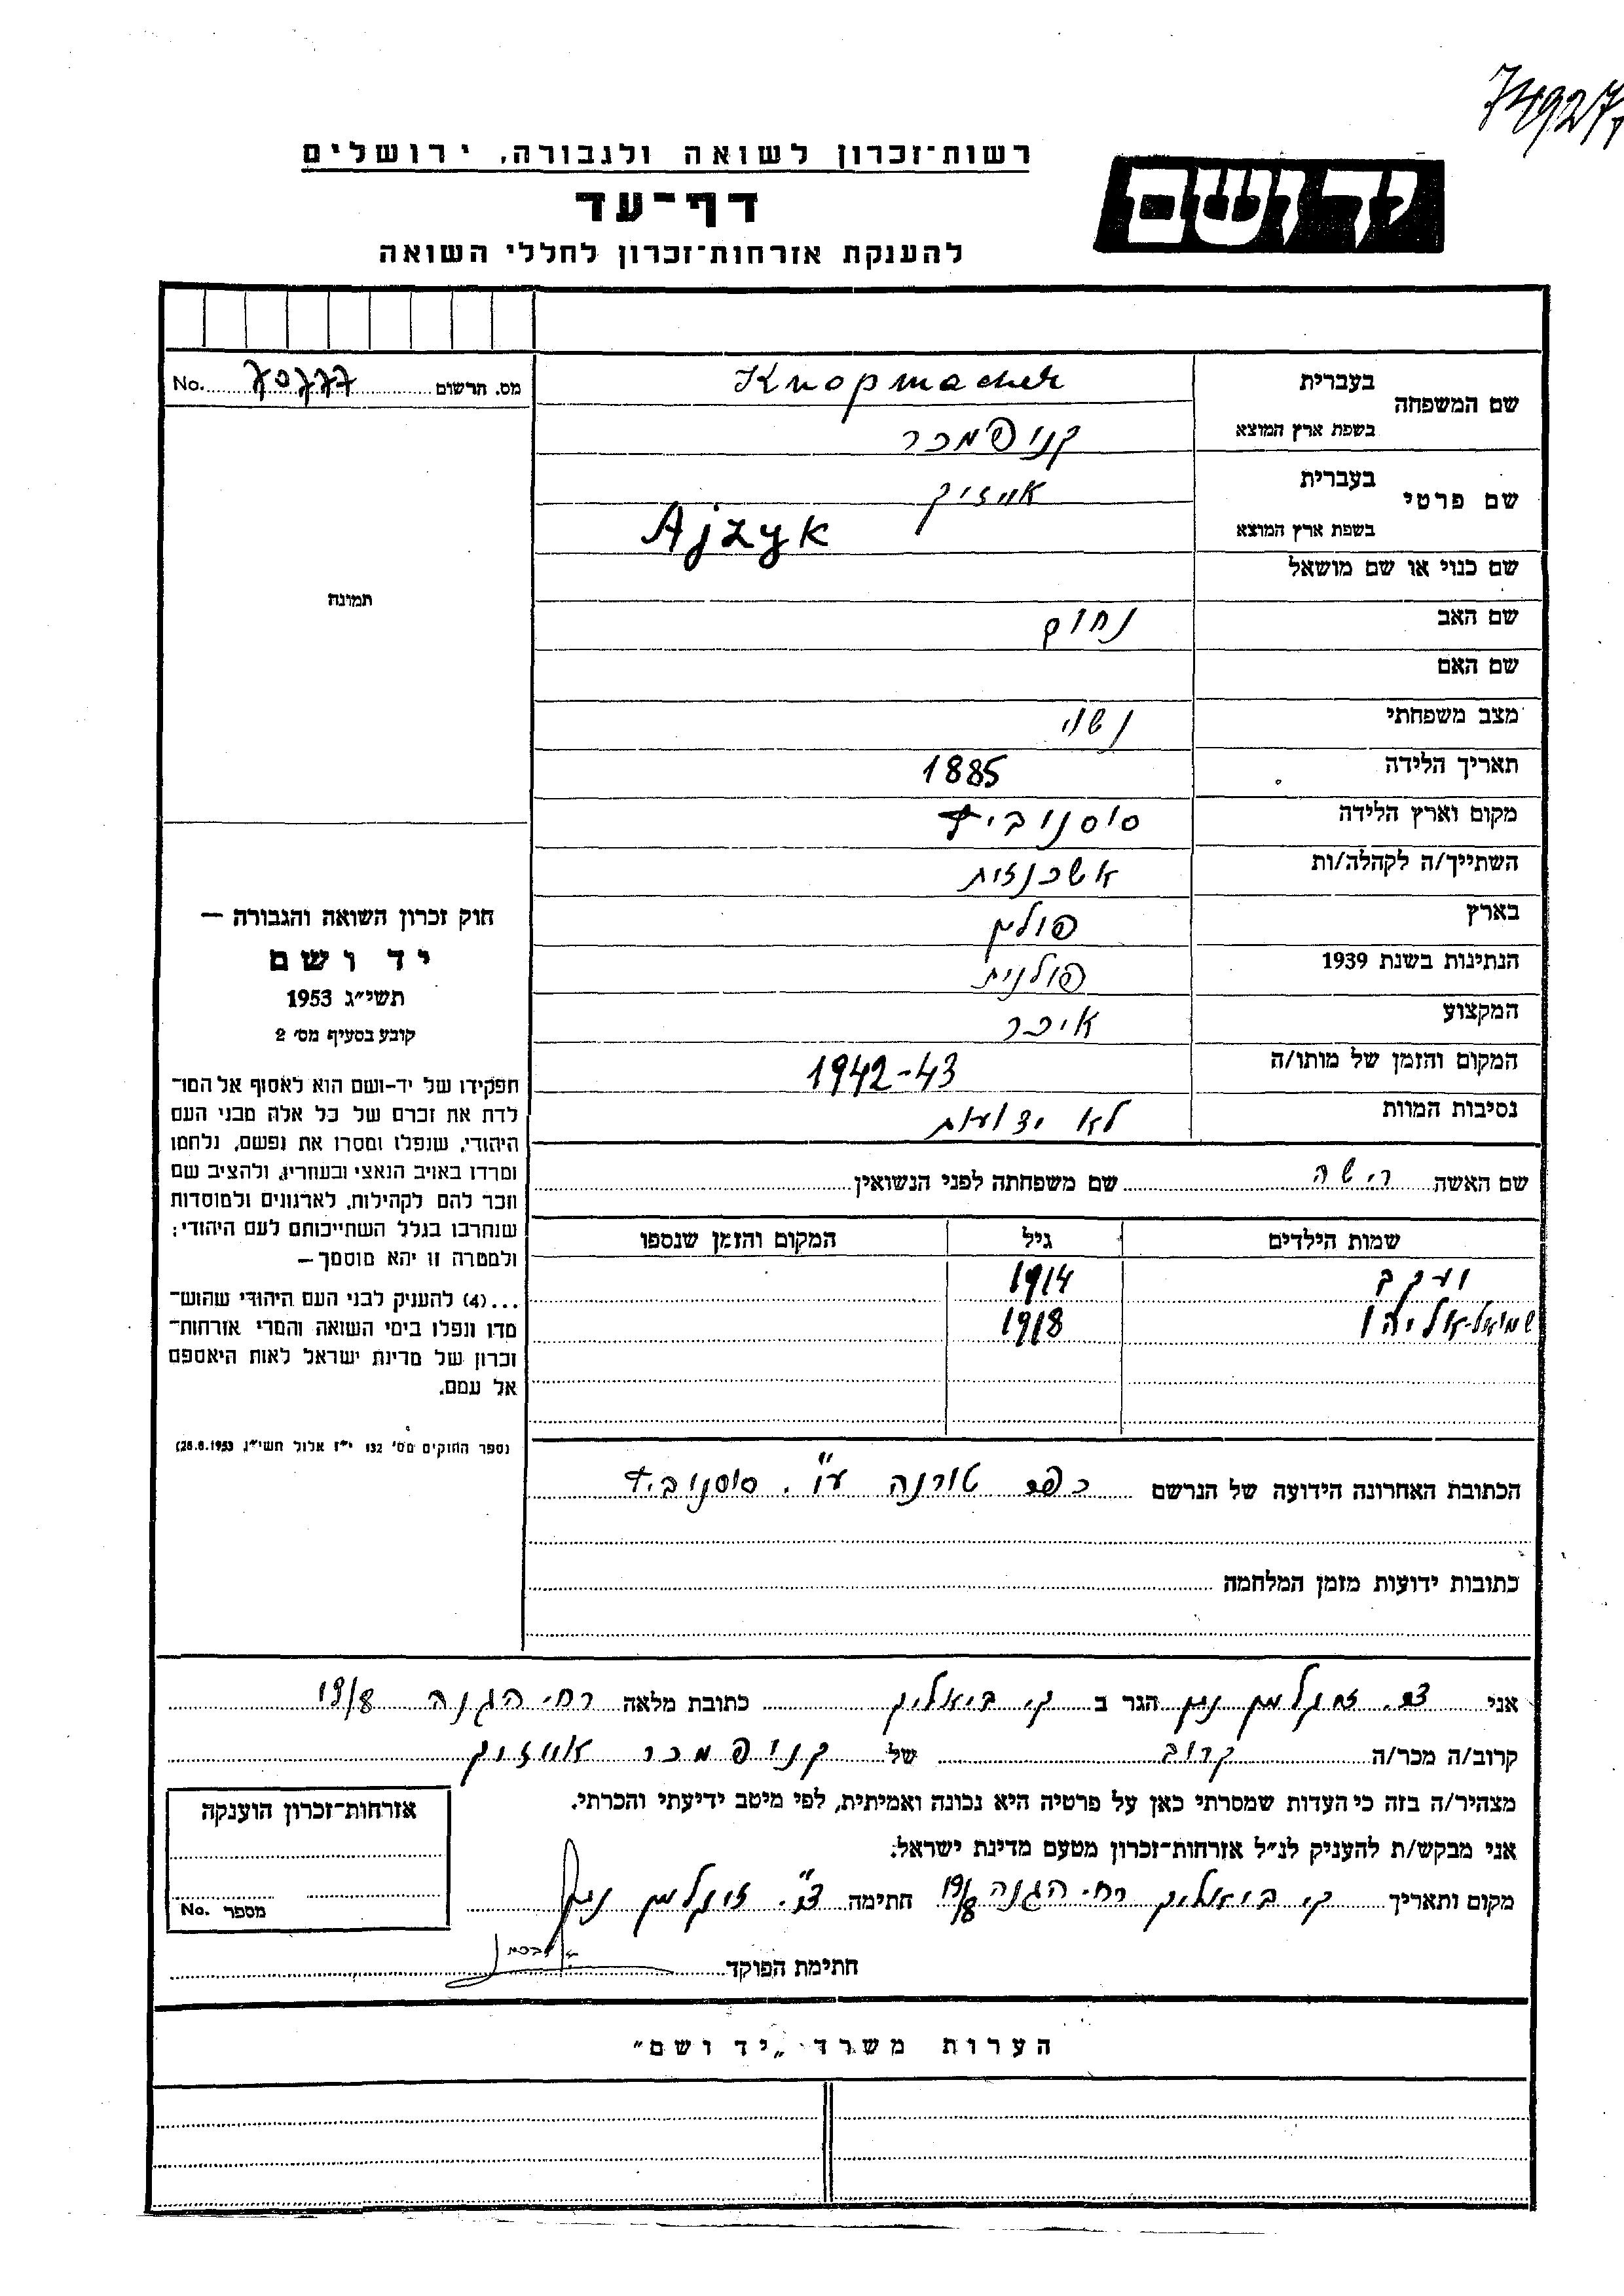 רשות־זכרון לשואה ולגבורה, ירושלים
יד ושם
דף־עד
להענקת אזרחות־זכרון לחללי השואה
שם המשפחה
בעברית Knopmacher
בשפת ארץ המוצא קנופמכר
שם פרטי
בעברית אייזיק
בשפת ארץ המוצא Ajzyk
שם כנוי או שם מושאל
שם האב נחום
שם האם
מצב משפחתי נשוי
תאריך הלידה 1885
מקום וארץ הלידה סוסנוביץ
השתייך/ה לקהלה/ות אשכנזית
בארץ פולין
הנתינות בשנת 1939 פולנית
המקצוע איכר
המקום והזמן של מותו/ה 1942-43
נסיבות המוות לא ידועות
שם האשה רישה שם משפחתה לפני הנשואין
שמות הילדים גיל המקום והזמן שנספו
יעקב 1914
שמואל-אליהו 1918
הכתובת האחרונה הידועה של הנרשם כפר טורנה ע"י סוסנוביץ
כתובות ידועות מזמן המלחמה
מס. הרשום No.
תמונה
חוק זכרון השואה והגבורה —
יד ושם
תשי״ג 1953
קובע בסעיף מס׳ 2
תפקידו של יד-ושם הוא לאסוף אל המו־
לדת את זכרם של כל אלה מבני העם
היהודי, שנפלו ומסרו את נפשם, נלחמו
ומרדו באויב הנאצי ובעוזריו, ולהציב שם
וזכר להם לקהילות, לארגונים ולמוסדות
שנחרבו בגלל השתייכותם לעם היהודי;
ולמטרה זו יהא מוסמך —
...(4) להעניק לבני העם היהודי שהוש־
מדו ונפלו בימי השואה והמרי אזרחות־
זכרון של מדינת ישראל לאות היאספם
אל עמם.
(ספר החוקים מס׳ 132 י״ז אלול תשי״ג 28.8.1953)
אני הגר ב ק. ביאליק כתובת מלאה רח׳ הגנה 19/8
קרוב/ה מכר/ה קרוב של קנופמכר אייזיק
מצהיר/ה בזה כי העדות שמסרתי כאן על פרטיה היא נכונה ואמיתית, לפי מיטב ידיעתי והכרתי.
אני מבקש/ת להעניק לנ״ל אזרחות־זכרון מטעם מדינת ישראל.
מקום ותאריך ק. ביאליק רח׳ הגנה 19/8 חתימה
חתימת הפוקד
אזרחות־זכרון הוענקה
מספר No.
הערות משרד „יד ושם״